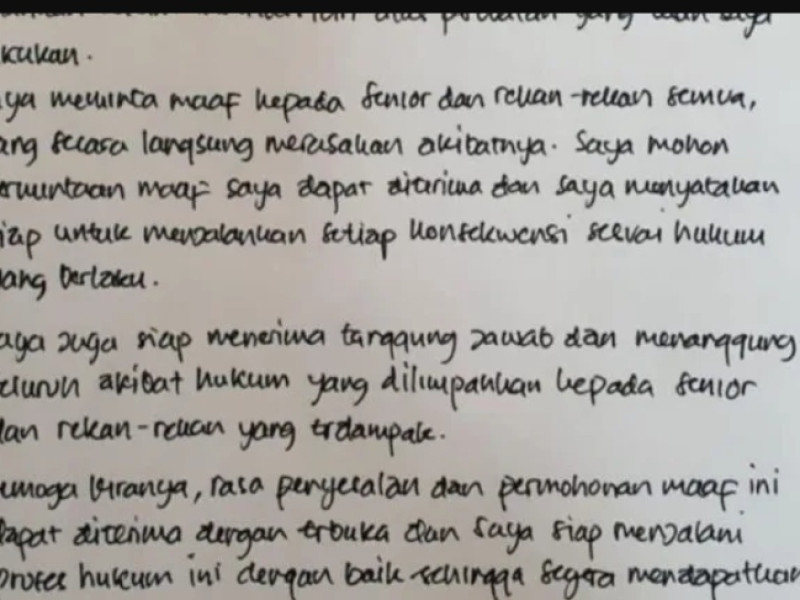 perbuatan yang telah saya
kukan.
ya meminta maaf kepada senior dan rekan-rekan semua,
ang secara langsung merasakan akibatnya. Saya mohon
ermintaan maaf saya dapat diterima dan saya menyatakan
iap untuk menjalankan setiap konsekwensi sesuai hukum
ang berlaku.
aya juga siap menerima tanggung jawab dan menanggung
eluruh akibat hukum yang dilimpahkan kepada senior
dan rekan-rekan yang trdampak.
emoga kiranya, rasa penyesalan dan permohonan maaf ini
dapat diterima dengan trbuka dan saya siap menjalani
proses hukum ini dengan baik sehingga segera mendapatkan